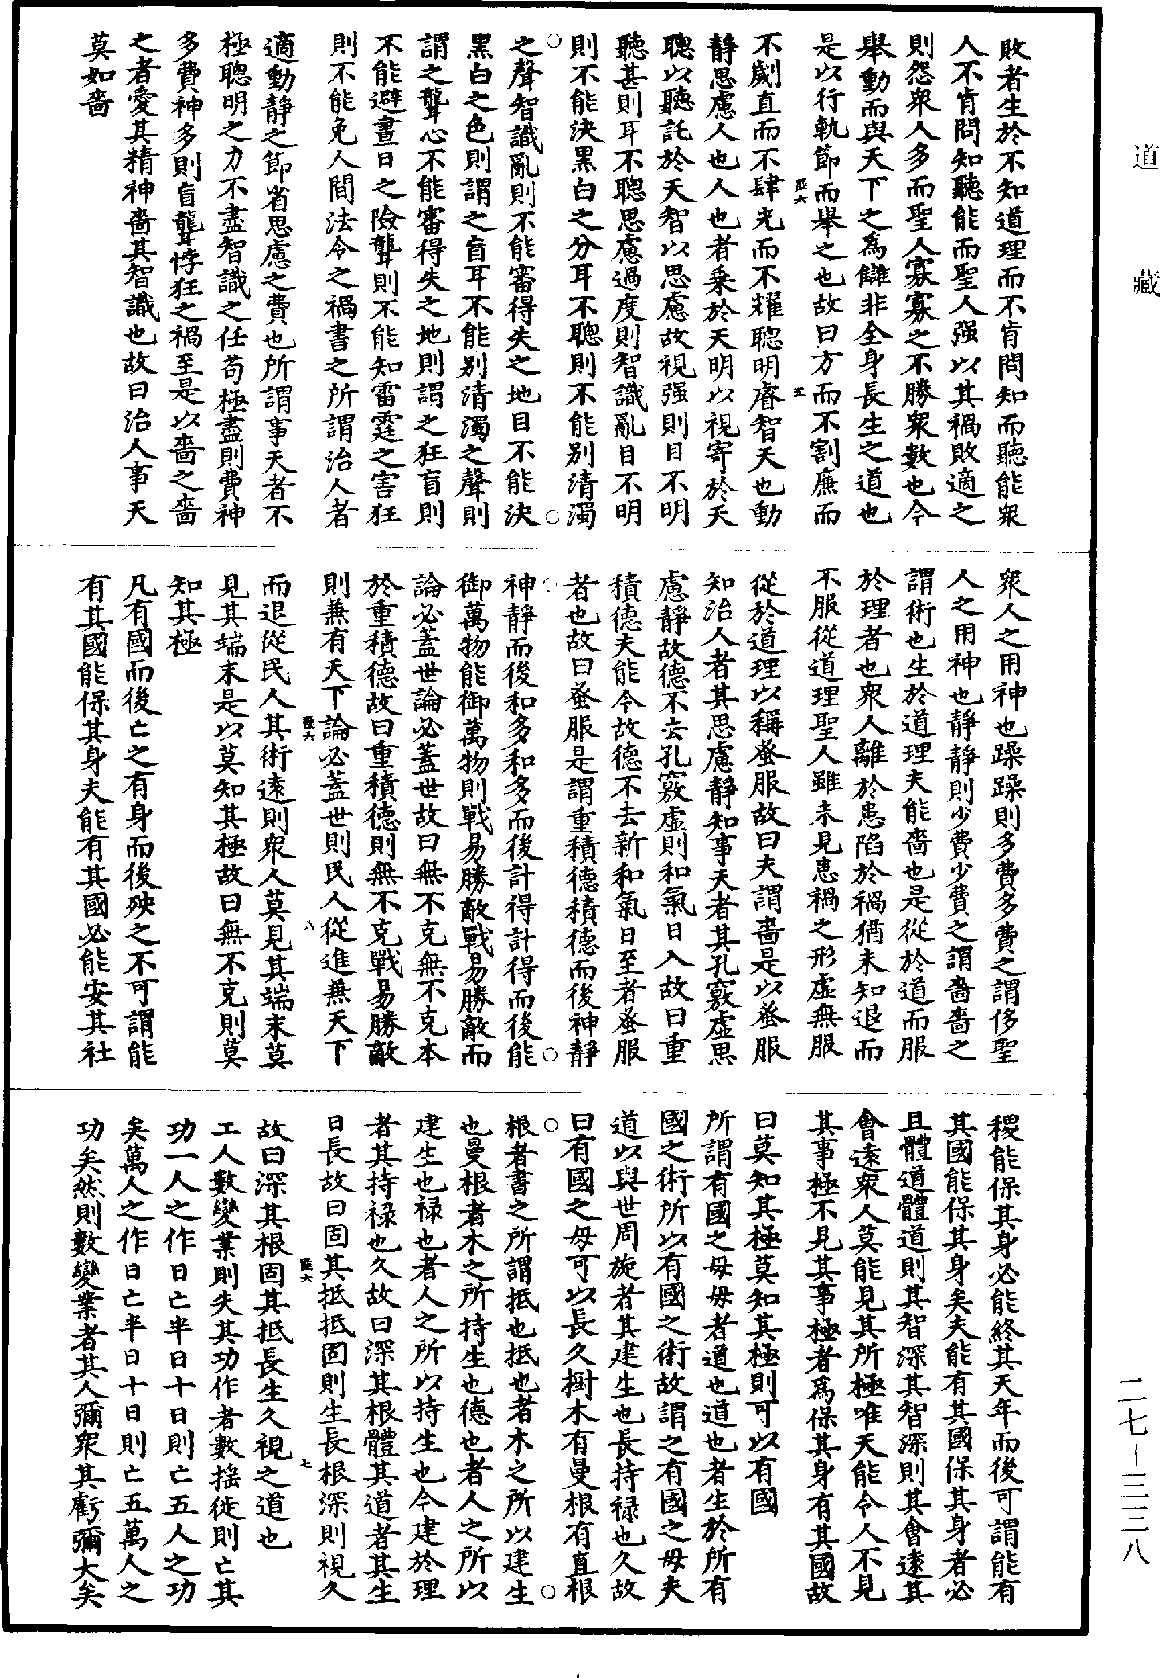 道藏
敗者生於不知道理而不肯問知而聽能衆
人不肯問知聽能而聖人强以其禍敗適之
則怨衆人多而聖人寡寡之不勝衆數也今
舉動而與天下之爲讎非全身長生之道也
是以行軌節而舉之也故曰方而不割廉而
不劌直而不肆光而不耀聰明睿智天也動
静思慮人也人也者乘於天明以視寄於天
聰以聽託於天智以思慮故視强則目不明
聽甚則耳不聰思慮過度則智識亂目不明
則不能決黑白之分耳不聰則不能别清濁
之聲智識亂則不能審得失之地目不能決
黑白之色則謂之盲耳不能别清濁之聲則
謂之聾心不能審得失之地則謂之狂盲則
不能避晝日之險聾則不能知雷霆之害狂
則不能免人間法令之禍書之所謂治人者
適動静之節省思慮之費也所謂事天者不
極聰明之力不盡智識之任苟極盡則費神
多費神多則盲聾悖狂之禍至是以嗇之嗇
之者愛其精神嗇其智識也故曰治人事天
莫如嗇
衆人之用神也躁躁則多費多費之謂侈聖
人之用神也静静則少費少費之謂嗇嗇之
謂術也生於道理夫能嗇也是從於道而服
於理者也衆人離於患陷於禍猶未知退而
不服從道理聖人雖未見患禍之形虚無服
從於道理以稱蚤服故曰夫謂嗇是以蚤服
知治人者其思慮静知事天者其孔竅虚思
慮静故德不去孔竅虚則和氣日入故曰重
積德夫能令故德不去新和氣日至者蚤服
者也故曰蚤服是謂重積德積德而後神静
神静而後和多和多而後計得計得而後能
御萬物能御萬物則戰易勝敵戰易勝敵而
論必蓋世論必蓋世故曰無不克無不克本
於重積德故曰重積德則無不克戰易勝敵
則兼有天下論必蓋世則民人從進兼天下
而退從民人其術遠則衆人莫見其端末莫
見其端末是以莫知其極故曰無不克則莫
知其極
凡有國而後亡之有身而後殃之不可謂能
有其國能保其身夫能有其國必能安其社
稷能保其身必能終其天年而後可謂能有
其國能保其身矣夫能有其國保其身者必
且體道體道則其智深其智深則其會遠其
會遠衆人莫能見其所極唯天能令人不見
其事極不見其事極者爲保其身有其國故
曰莫知其極莫知其極則可以有國
所謂有國之母母者道也道也者生於所有
國之術所以有國之術故謂之有國之母夫
道以與世周旋者其建生也長持禄也久故
曰有國之母可以長久樹木有曼根有直根
根者書之所謂抵也抵也者木之所以建生
也曼根者木之所持生也德也者人之所以
建生也禄也者人之所以持生也今建於理
者其持禄也久故曰深其根體其道者其生
日長故曰固其抵抵固則生長根深則視久
故曰深其根固其抵長生久視之道也
工人數變業則失其功作者數揺徙則亡其
功一人之作日亡半日十日則亡五人之功
矣萬人之作日亡半日十日則亡五萬人之
功矣然則數變業者其人彌衆其虧彌大矣
二七-三三八